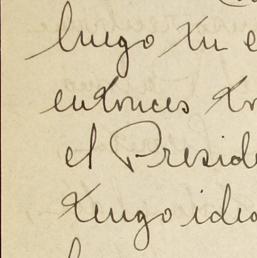 luego tu e
entonces to
el Preside
tengo idea